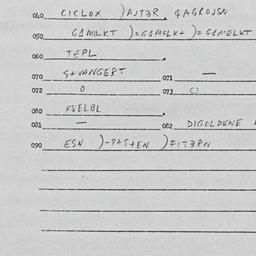 040 CICLOX )AJT3R, GAGROJSN
050 GAMILKT )=GAMELK+ )=GAMELKT
060 TEPL
070 S+VANGERT 071 —
072 0 073 0
080 KSELBL
081 — 082 DIGOLDENE
090 ESN )-PAS+EN )FIT3RN